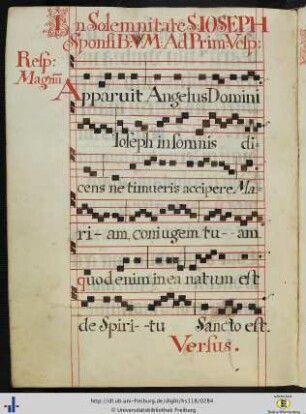 In Solemnitate S. IOSEPH
Sponsi B.V.M. Ad Prim: Vesp:
Resp:
Magnū
Apparuit Angelus Domini
Ioseph in somnis di-
cens ne timueris accipere Ma-
ri-am coniugem tu--am
quod enim in ea natum est
de Spiri--tu Sancto est.
Versus.
http://dl.ub.uni-freiburg.de/diglit/hs118/0284
© Universitätsbibliothek Freiburg